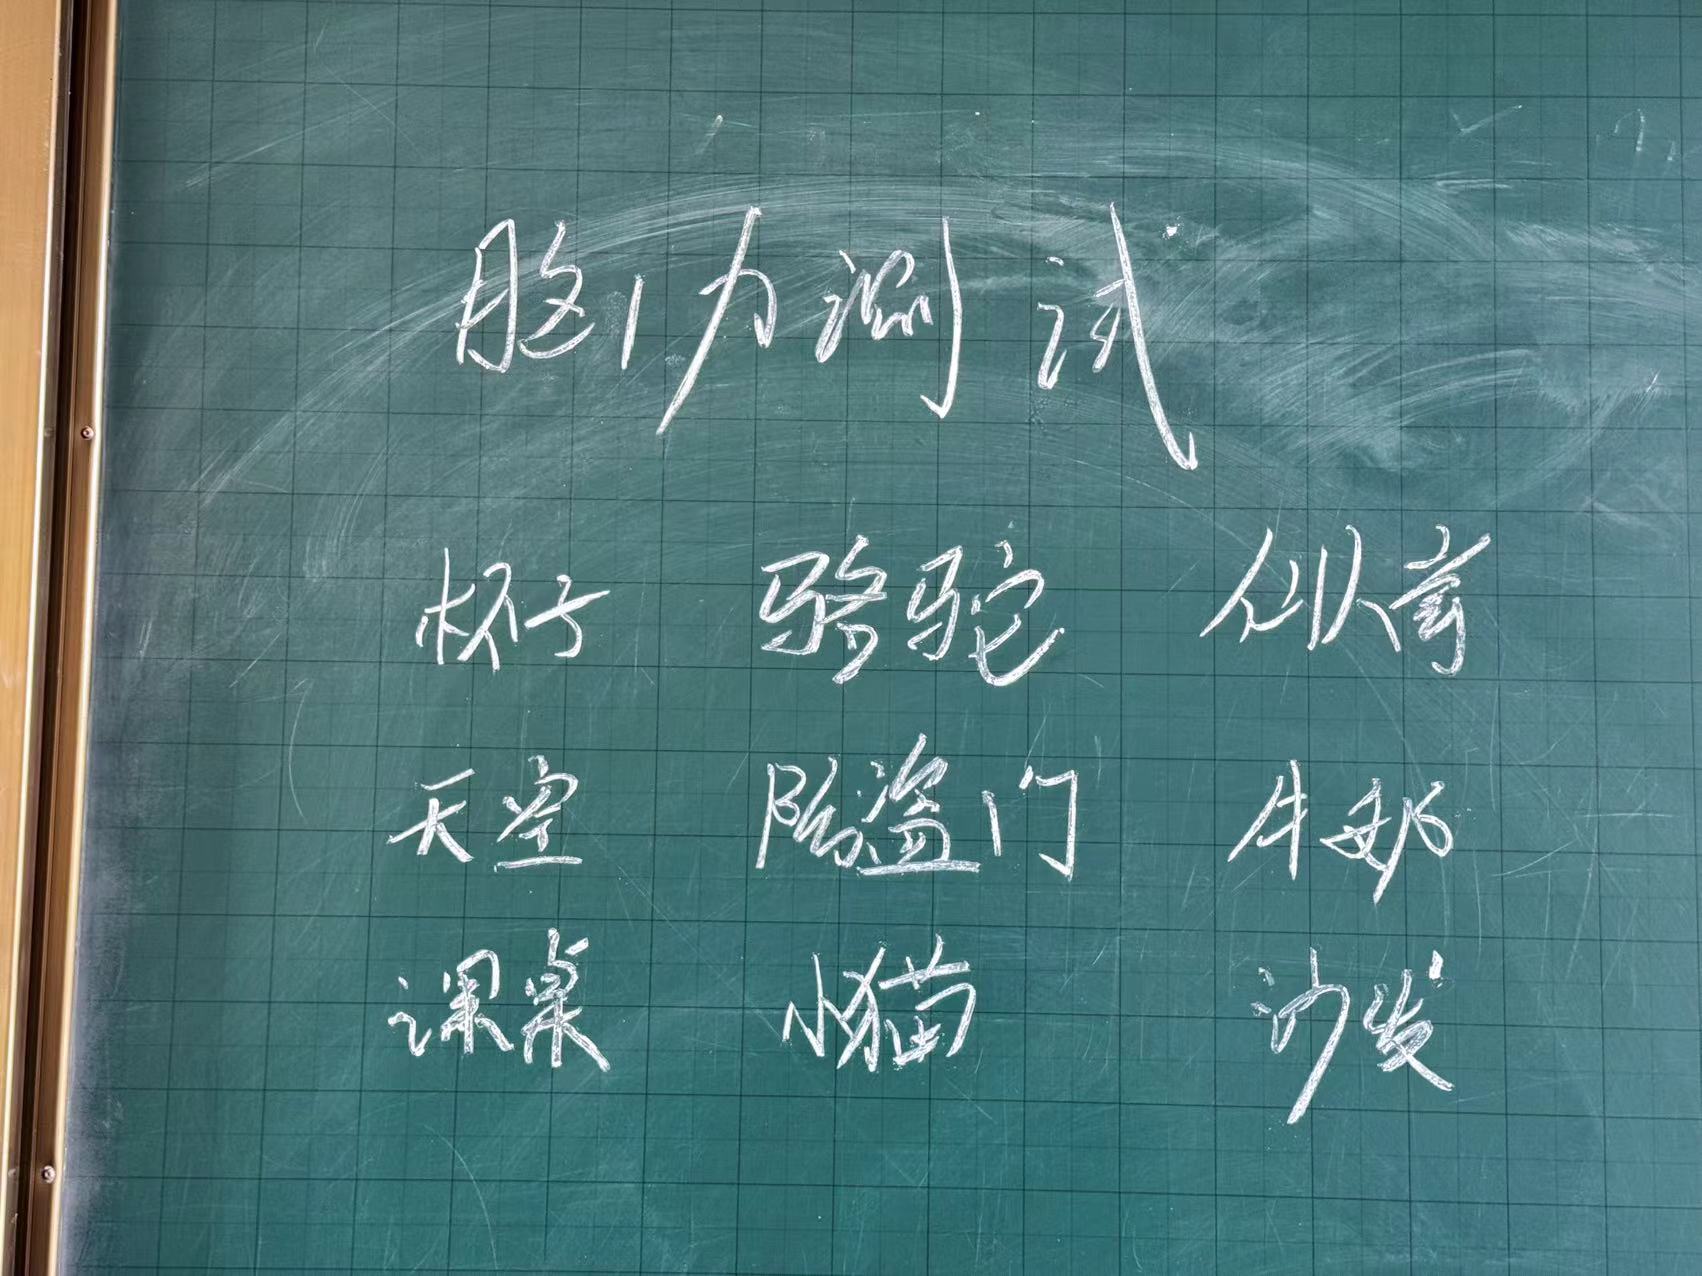 脑力测试
杯子 骆驼 仙人掌
天空 防盗门 牛奶
课桌 小猫 沙发